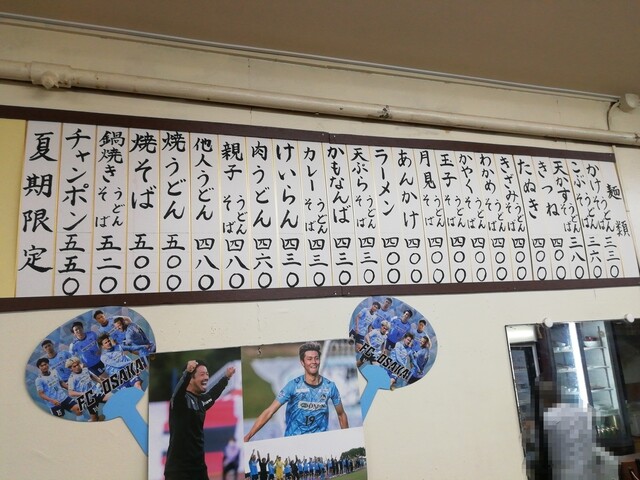 麺類
かけ うどん そば 三三〇
こぶ うどん そば 三六〇
天かす うどん そば 三八〇
きつね 四〇〇
たぬき 四〇〇
きざみ うどん そば 四〇〇
わかめ うどん そば 四〇〇
かやく うどん そば 四〇〇
玉子 うどん そば 四〇〇
月見 うどん そば 四〇〇
あんかけ 四〇〇
ラーメン 四〇〇
天ぷら うどん そば 四三〇
かもなんば 四三〇
カレー うどん そば 四三〇
けいらん 四三〇
肉うどん 四六〇
親子 うどん そば 四八〇
他人うどん 四八〇
焼うどん 五〇〇
焼そば 五〇〇
鍋焼き うどん そば 五二〇
チャンポン 五五〇
夏期限定
FC OSAKA
FC OSAKA
19